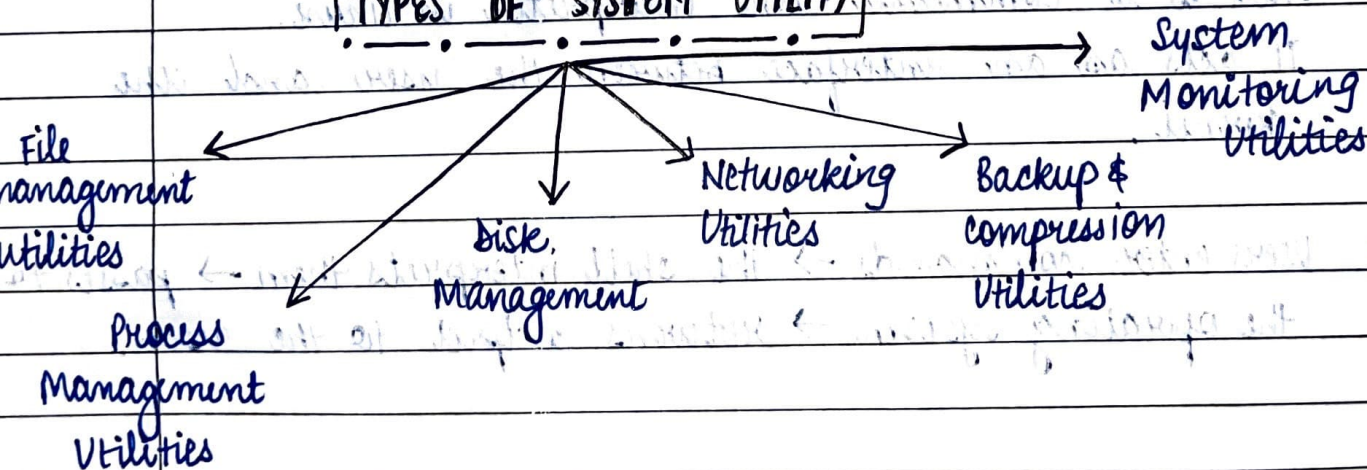 TYPES OF SYSTEM UTILITY
System
Monitoring
Utilities
File
management
utilities
Process
Management
Utilities
Disk.
Management
Networking
Utilities
Backup &
compression
Utilities